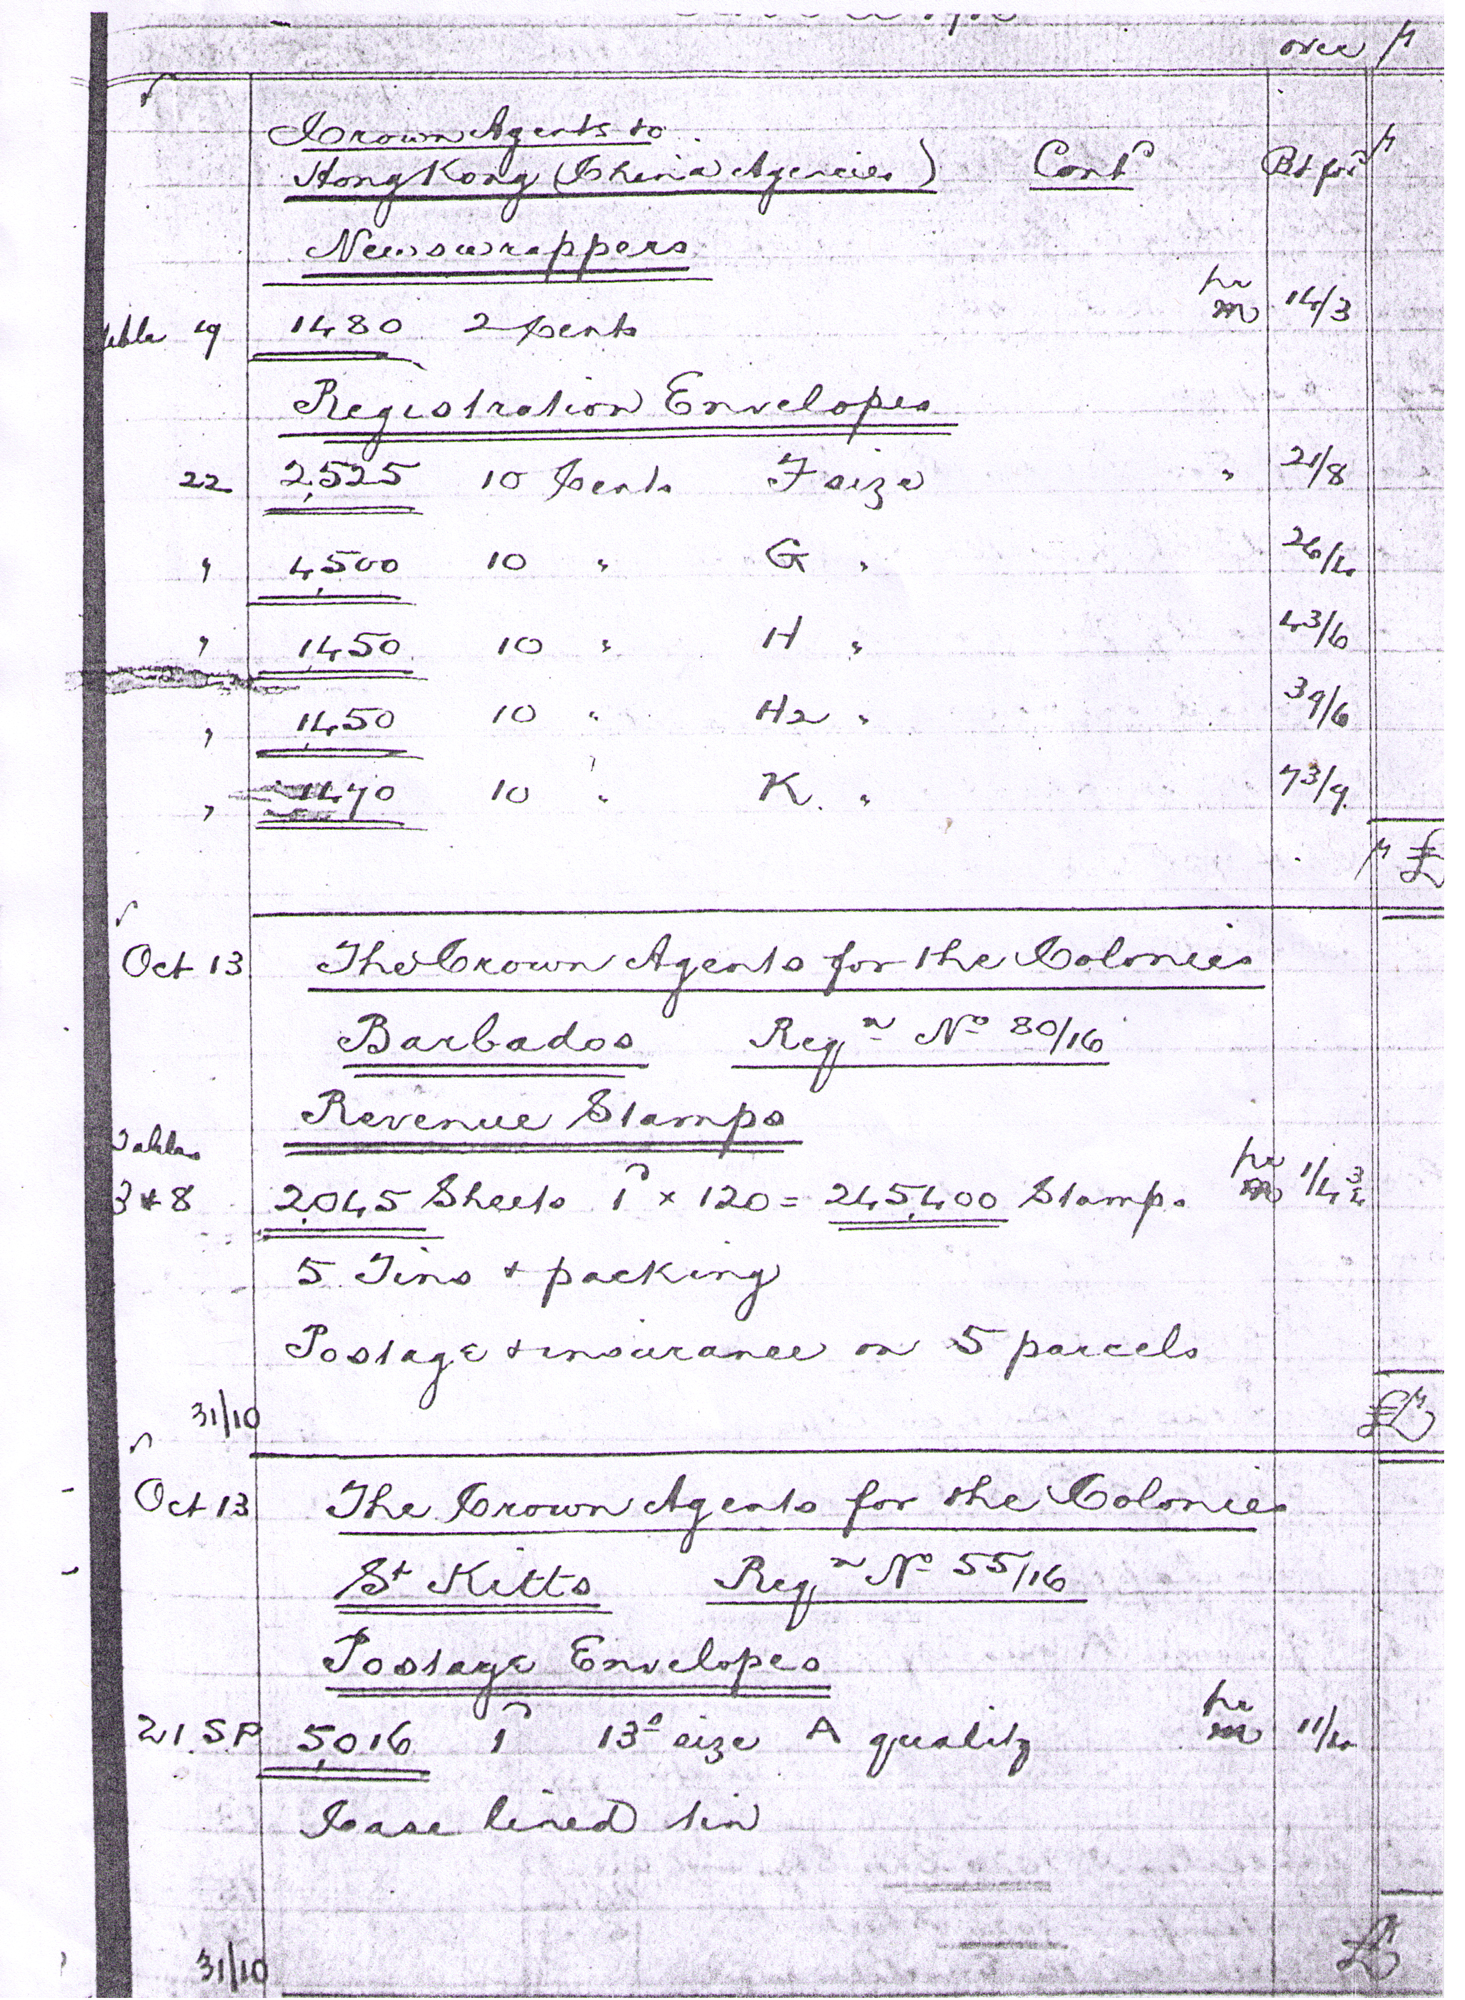 over
Crown Agents to
Hong Kong (China Agencies) Contd Bt ford
Newswrappers
Table 19 1480 2 Cents pr m 14/3
Registration Envelopes
22 2,525 10 Cents F size " 21/8
" 4,500 10 " G " 26/4
" 1,450 10 " H " 43/6
" 1,450 10 " H2 " 39/6
" 1,470 10 " K. " 73/9
£
Oct 13 The Crown Agents for the Colonies
Barbados Reqn No 80/16
Revenue Stamps
Tables
3 + 8 2,045 Sheets 1d x 120 = 245,400 Stamps pr m 1/4 3/4
5 Tins + packing
Postage + insurance on 5 parcels
31/10 £
Oct 13 The Crown Agents for the Colonies
St Kitts Reqn No 55/16
Postage Envelopes
21. S.P. 5,016 1d 13a size A quality pr m 11/4
Case lined tin
31/10 £